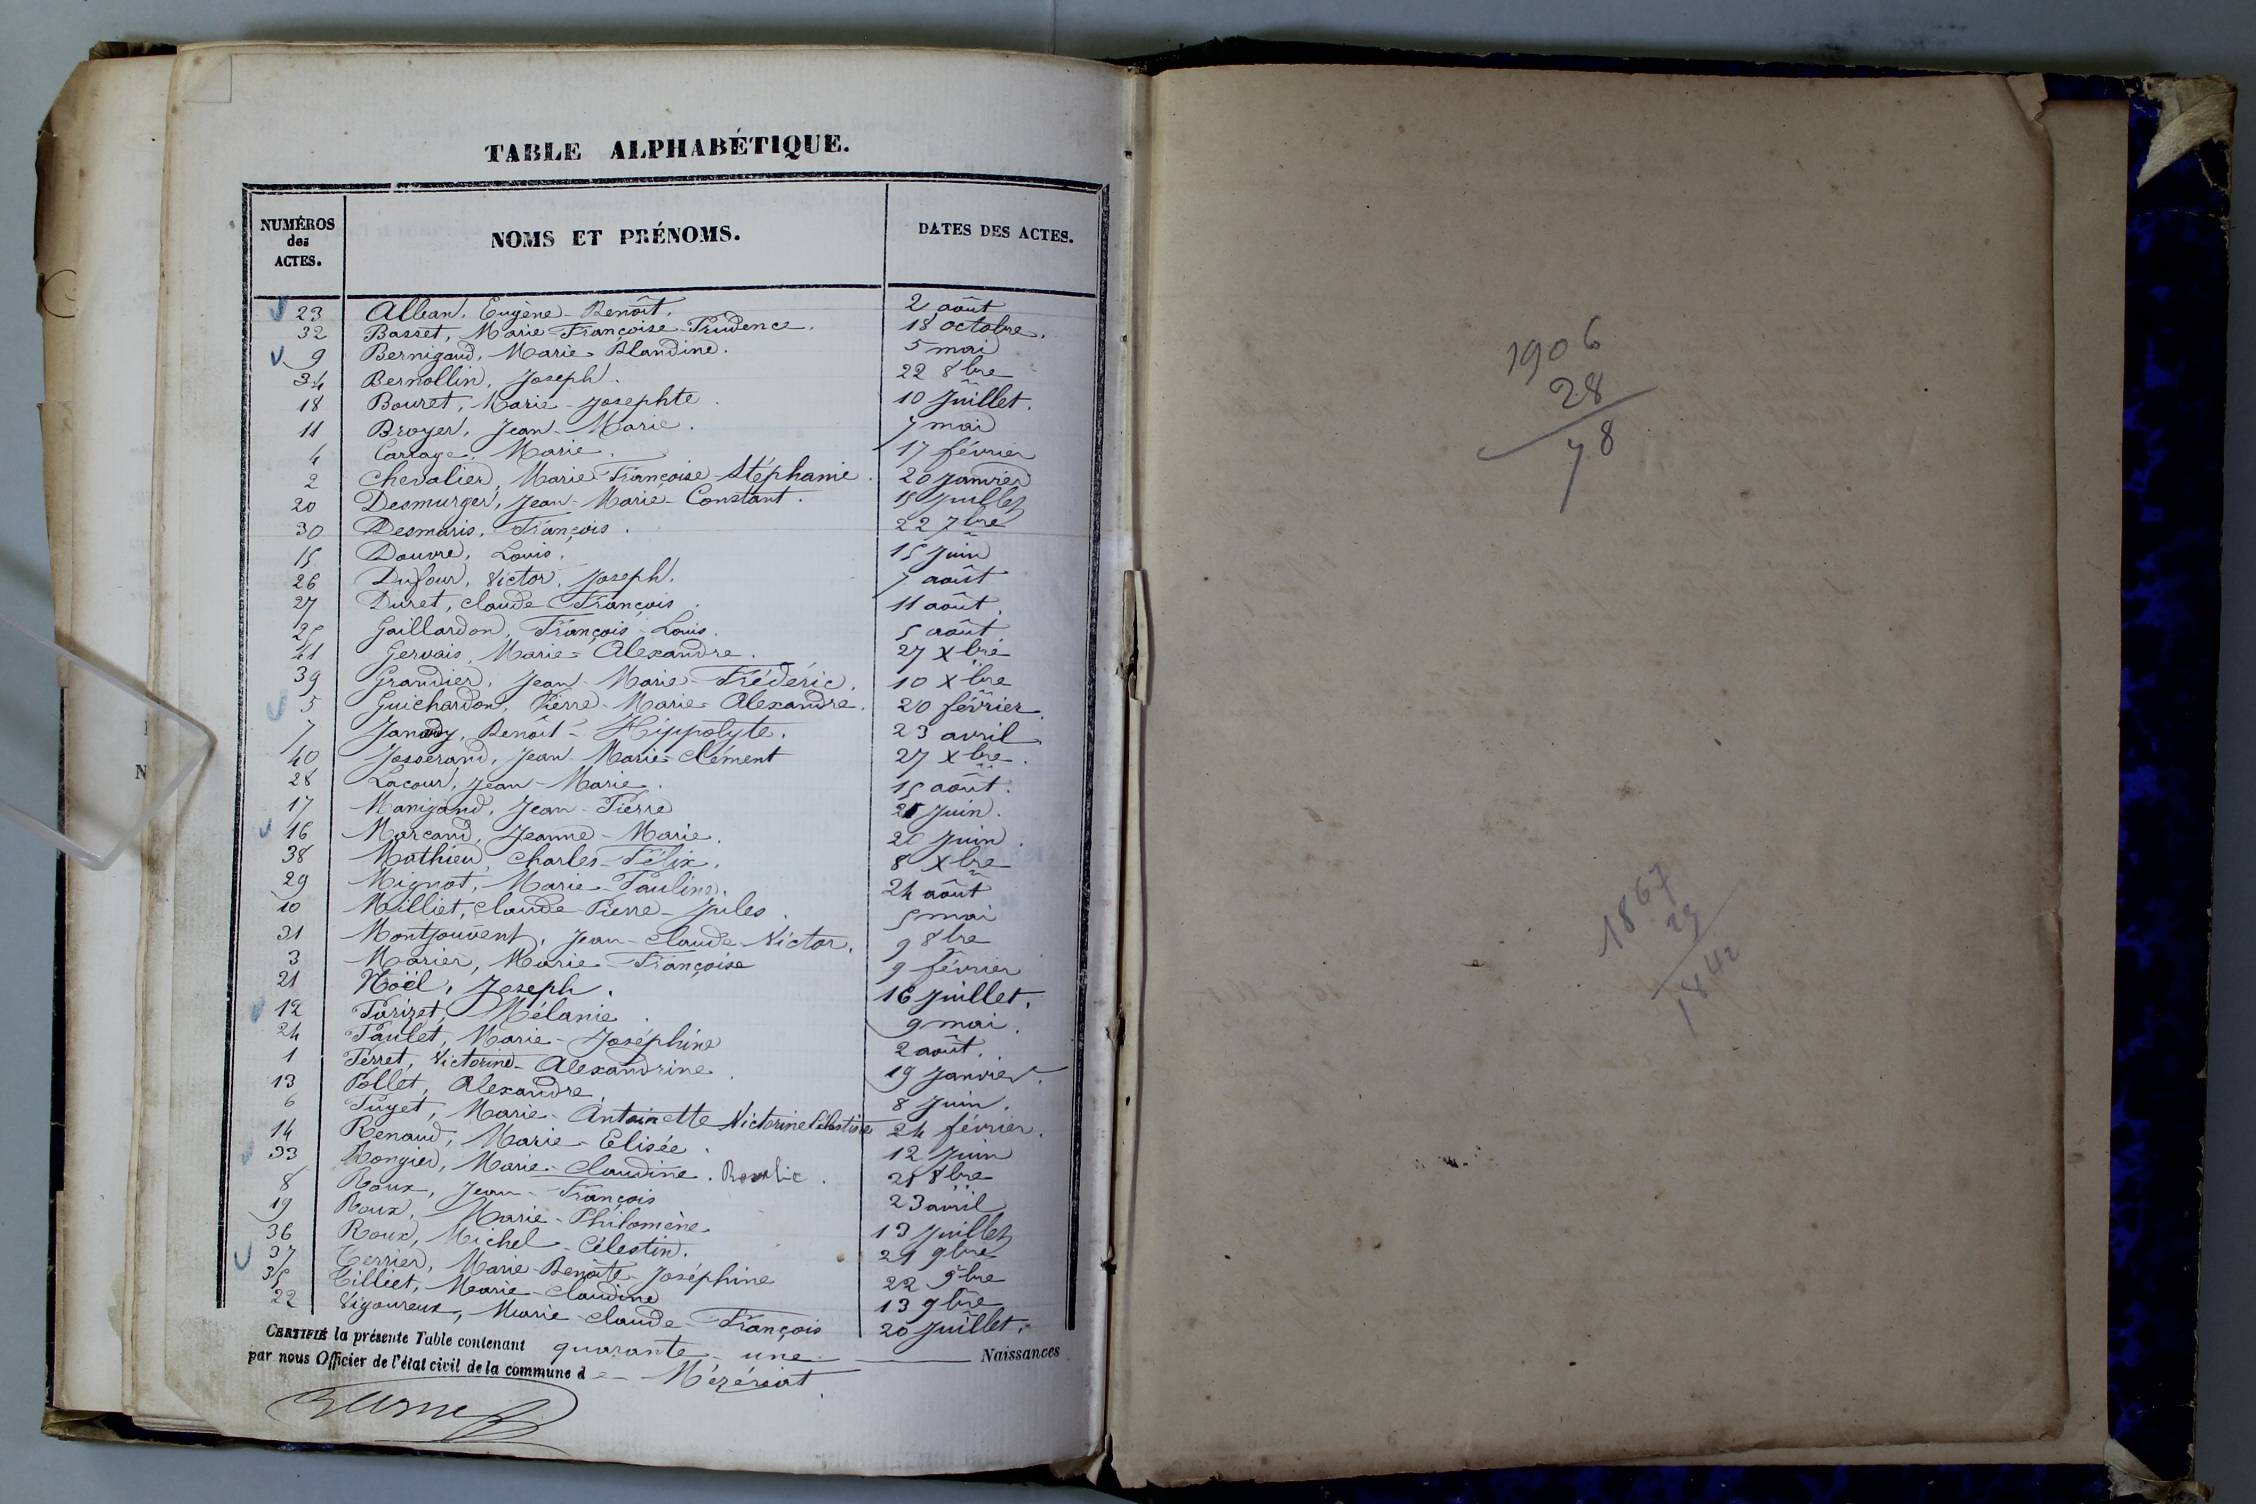 TABLE ALPHABÉTIQUE.
NUMÉROS des ACTES. NOMS ET PRÉNOMS. DATES DES ACTES.
23 Alban, Eugène-Benoît. 2 août
32 Basset, Marie-Françoise-Prudence. 18 octobre.
9 Bernigaud, Marie-Blandine. 5 mai
34 Bernollin, Joseph. 22 8bre
18 Bouret, Marie-Josephte. 10 Juillet.
11 Broyer, Jean-Marie. 7 mai
4 Carrage, Marie. 17 février
2 Chevalier, Marie-Françoise-Stéphanie. 20 Janvier
20 Desmurger, Jean-Marie-Constant. 15 Juillet
30 Desmaris, François. 22 7bre
15 Douvre, Louis. 15 Juin
26 Dufour, Victor, Joseph. 7 août
27 Duret, Claude-François. 11 août.
25 Gaillardon, François-Louis. 5 août
41 Gervais, Marie-Alexandre. 27 Xbre
39 Grandier, Jean-Marie-Frédéric. 10 Xbre
5 Guichardon, Pierre-Marie-Alexandre. 20 février.
7 Benoît-Hippolyte. 23 avril
40 Josserand, Jean-Marie-Clément 27 Xbre.
28 Lacour, Jean-Marie. 15 août.
17 Manigand, Jean-Pierre Juin.
16 Marcand, Jeanne-Marie. 20 Juin.
38 Mathieu, Charles-Félix. 8 Xbre
29 Mignot, Marie-Pauline. 24 août
10 Milliet, Claude-Pierre-Jules. 5 mai
31 Montjouvent, Jean-Claude-Victor. 9 8bre
3 Morier, Marie-Françoise 9 février
21 Noël, Joseph. 16 Juillet.
12 Parizet, Mélanie. 9 mai.
24 Paulet, Marie-Joséphine 2 août.
1 Perret, Victorine-Alexandrine. 19 Janvier.
13 Pollet, Alexandre. 8 Juin.
6 Puget, Marie-Antoinette Victorine Célestine 24 février.
14 Renaud, Marie-Elisée. 12 Juin
33 Rongier, Marie-Claudine. 21 8bre
8 Roux, Jean-François 23 avril
19 Roux, Marie-Philomène 13 Juillet
36 Roux, Michel-Célestin. 21 9bre
37 Terrier, Marie-Benoîte-Joséphine 22 9bre
35 Tilliet, Marie-Claudine 13 9bre
22 Vigoureux, Marie-Claude-François 20 Juillet.
CERTIFIÉ la présente Table contenant quarante-une Naissances
par nous Officier de l'état civil de la commune de Mézériat.
1906
28
78
1867
25
1842